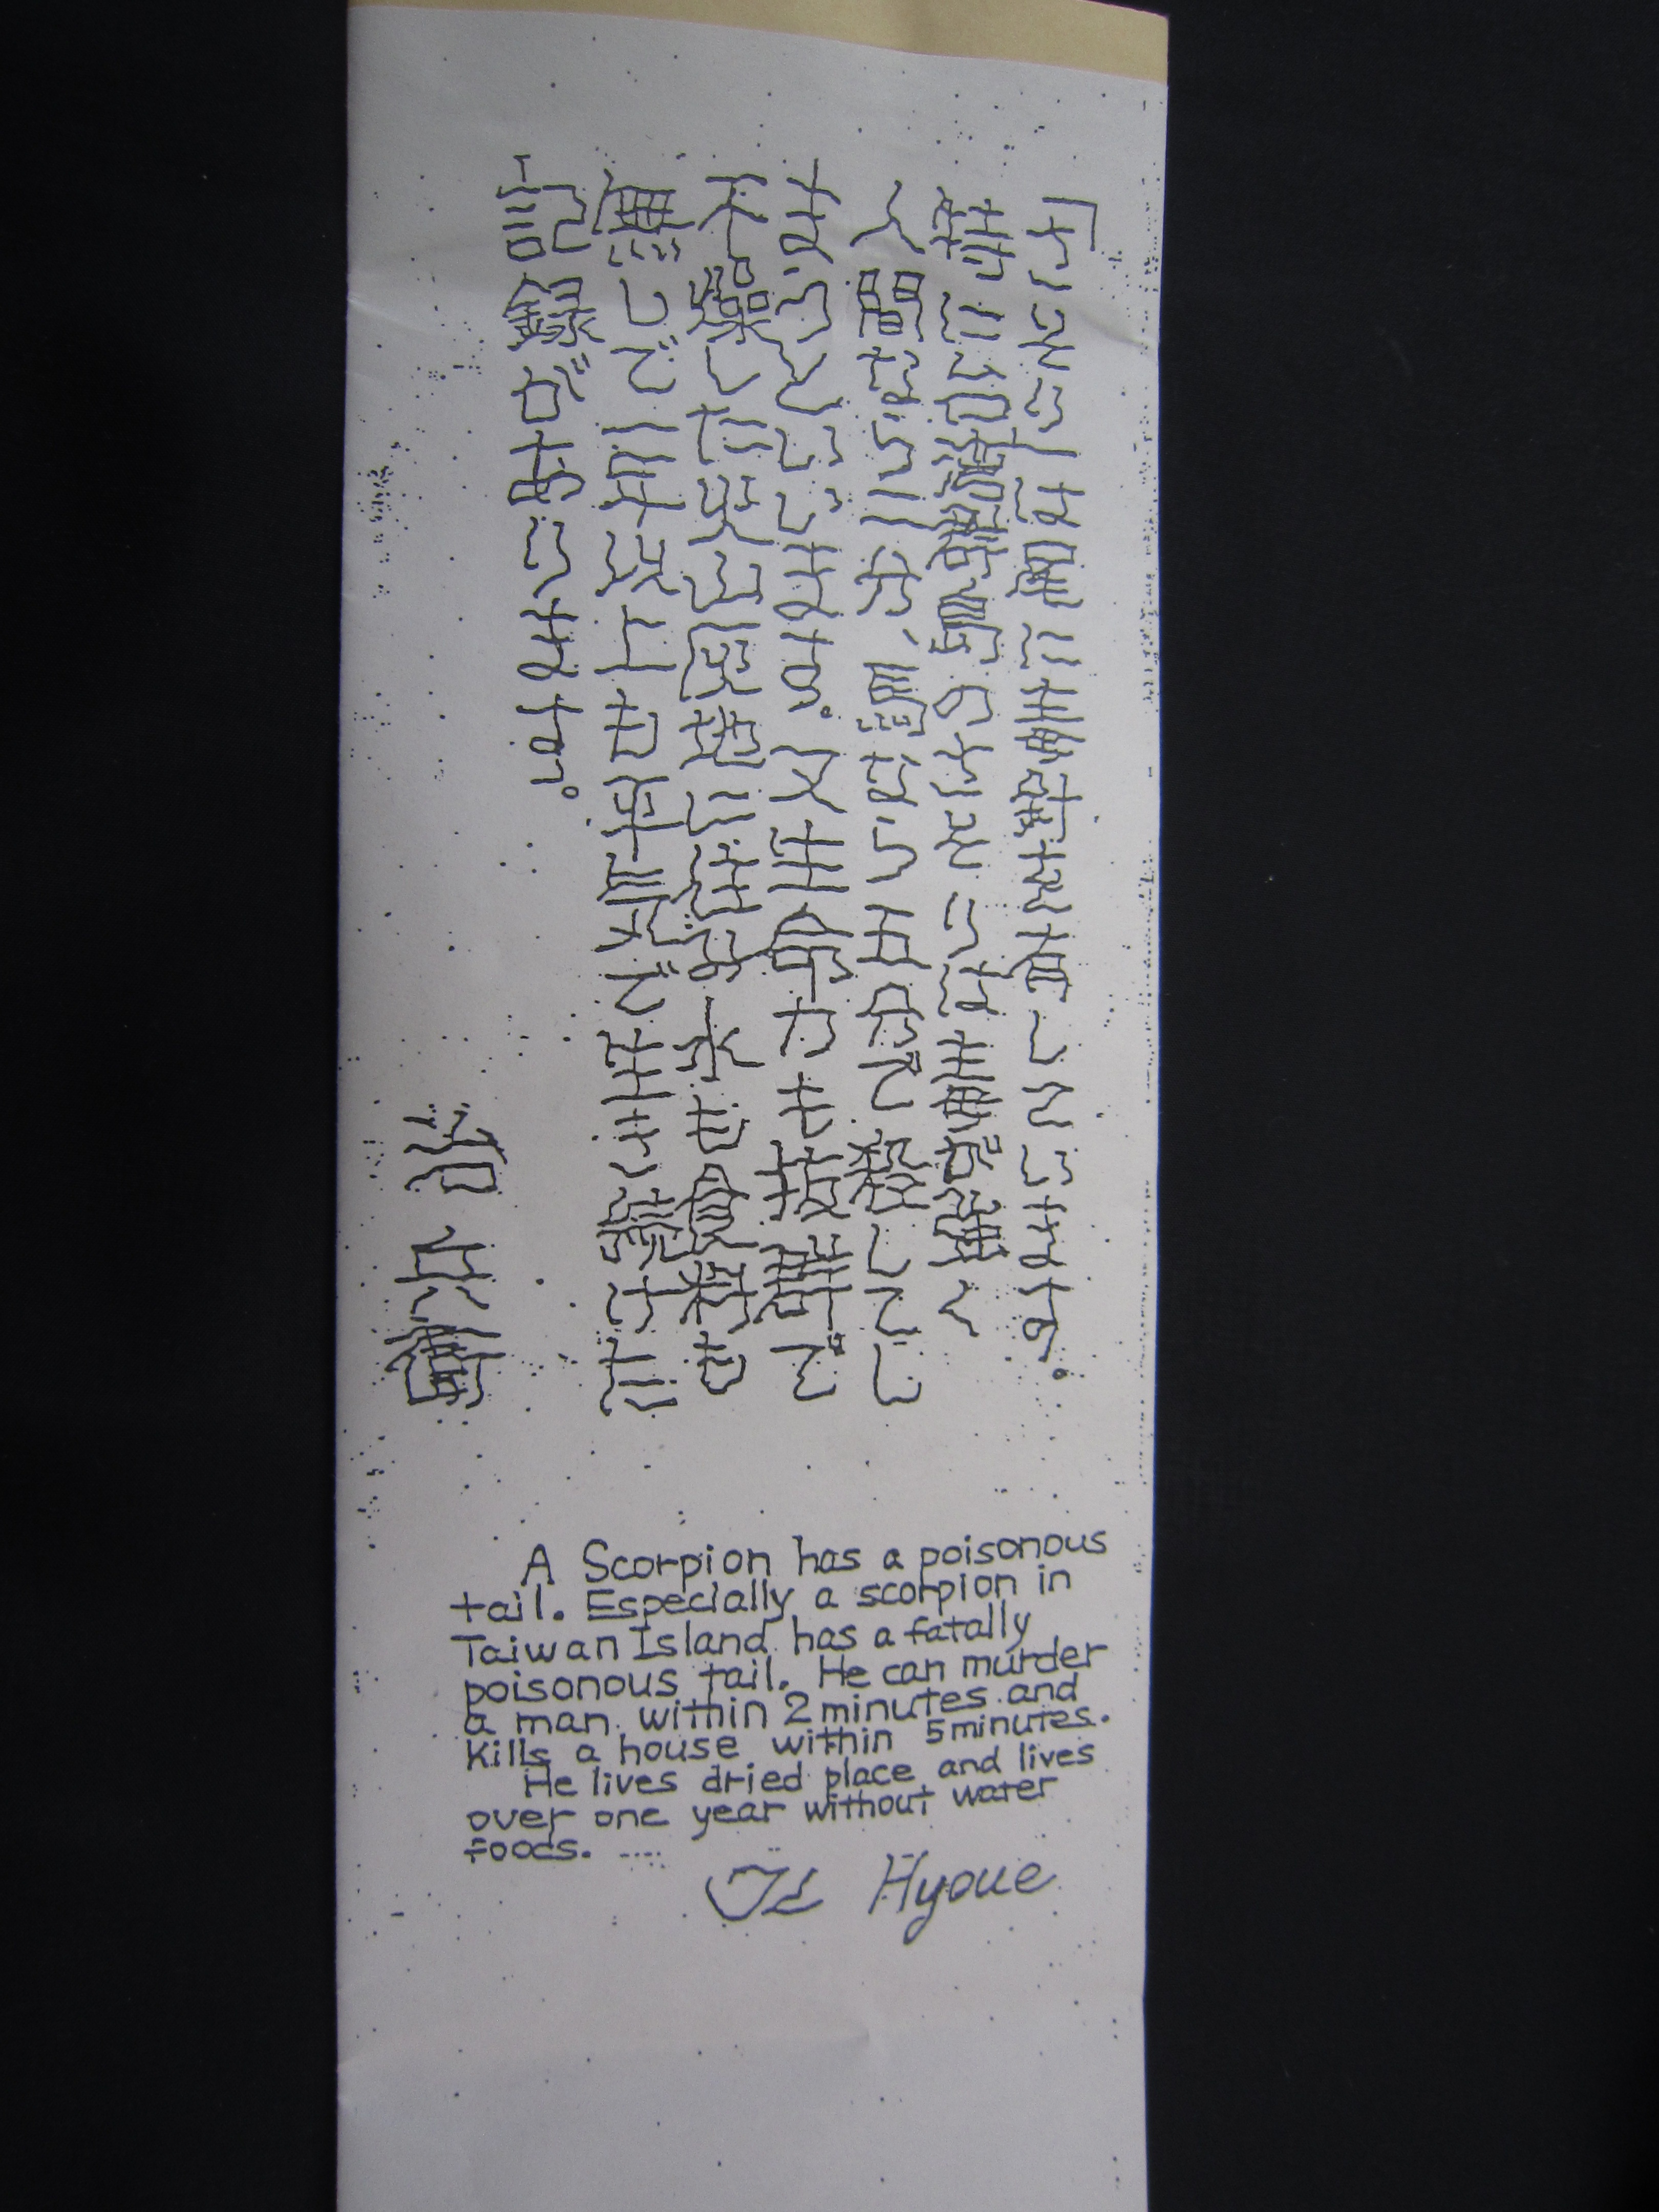 「さそり」は尾に毒針を有しています。
特に台灣島のさそりは毒が強く
人間なら二分、馬なら五分で殺してし
まうといいます。又生命力も抜群で
干燥した火山灰地に住み水も食料も
無しで一年以上も平気で生き続けた
記録があります。
兵衛
A Scorpion has a poisonous
tail. Especially a scorpion in
Taiwan Island has a fatally
poisonous tail. He can murder
a man within 2 minutes and
kills a house within 5 minutes.
He lives dried place and lives
over one year without water
foods. ....
Hyoue